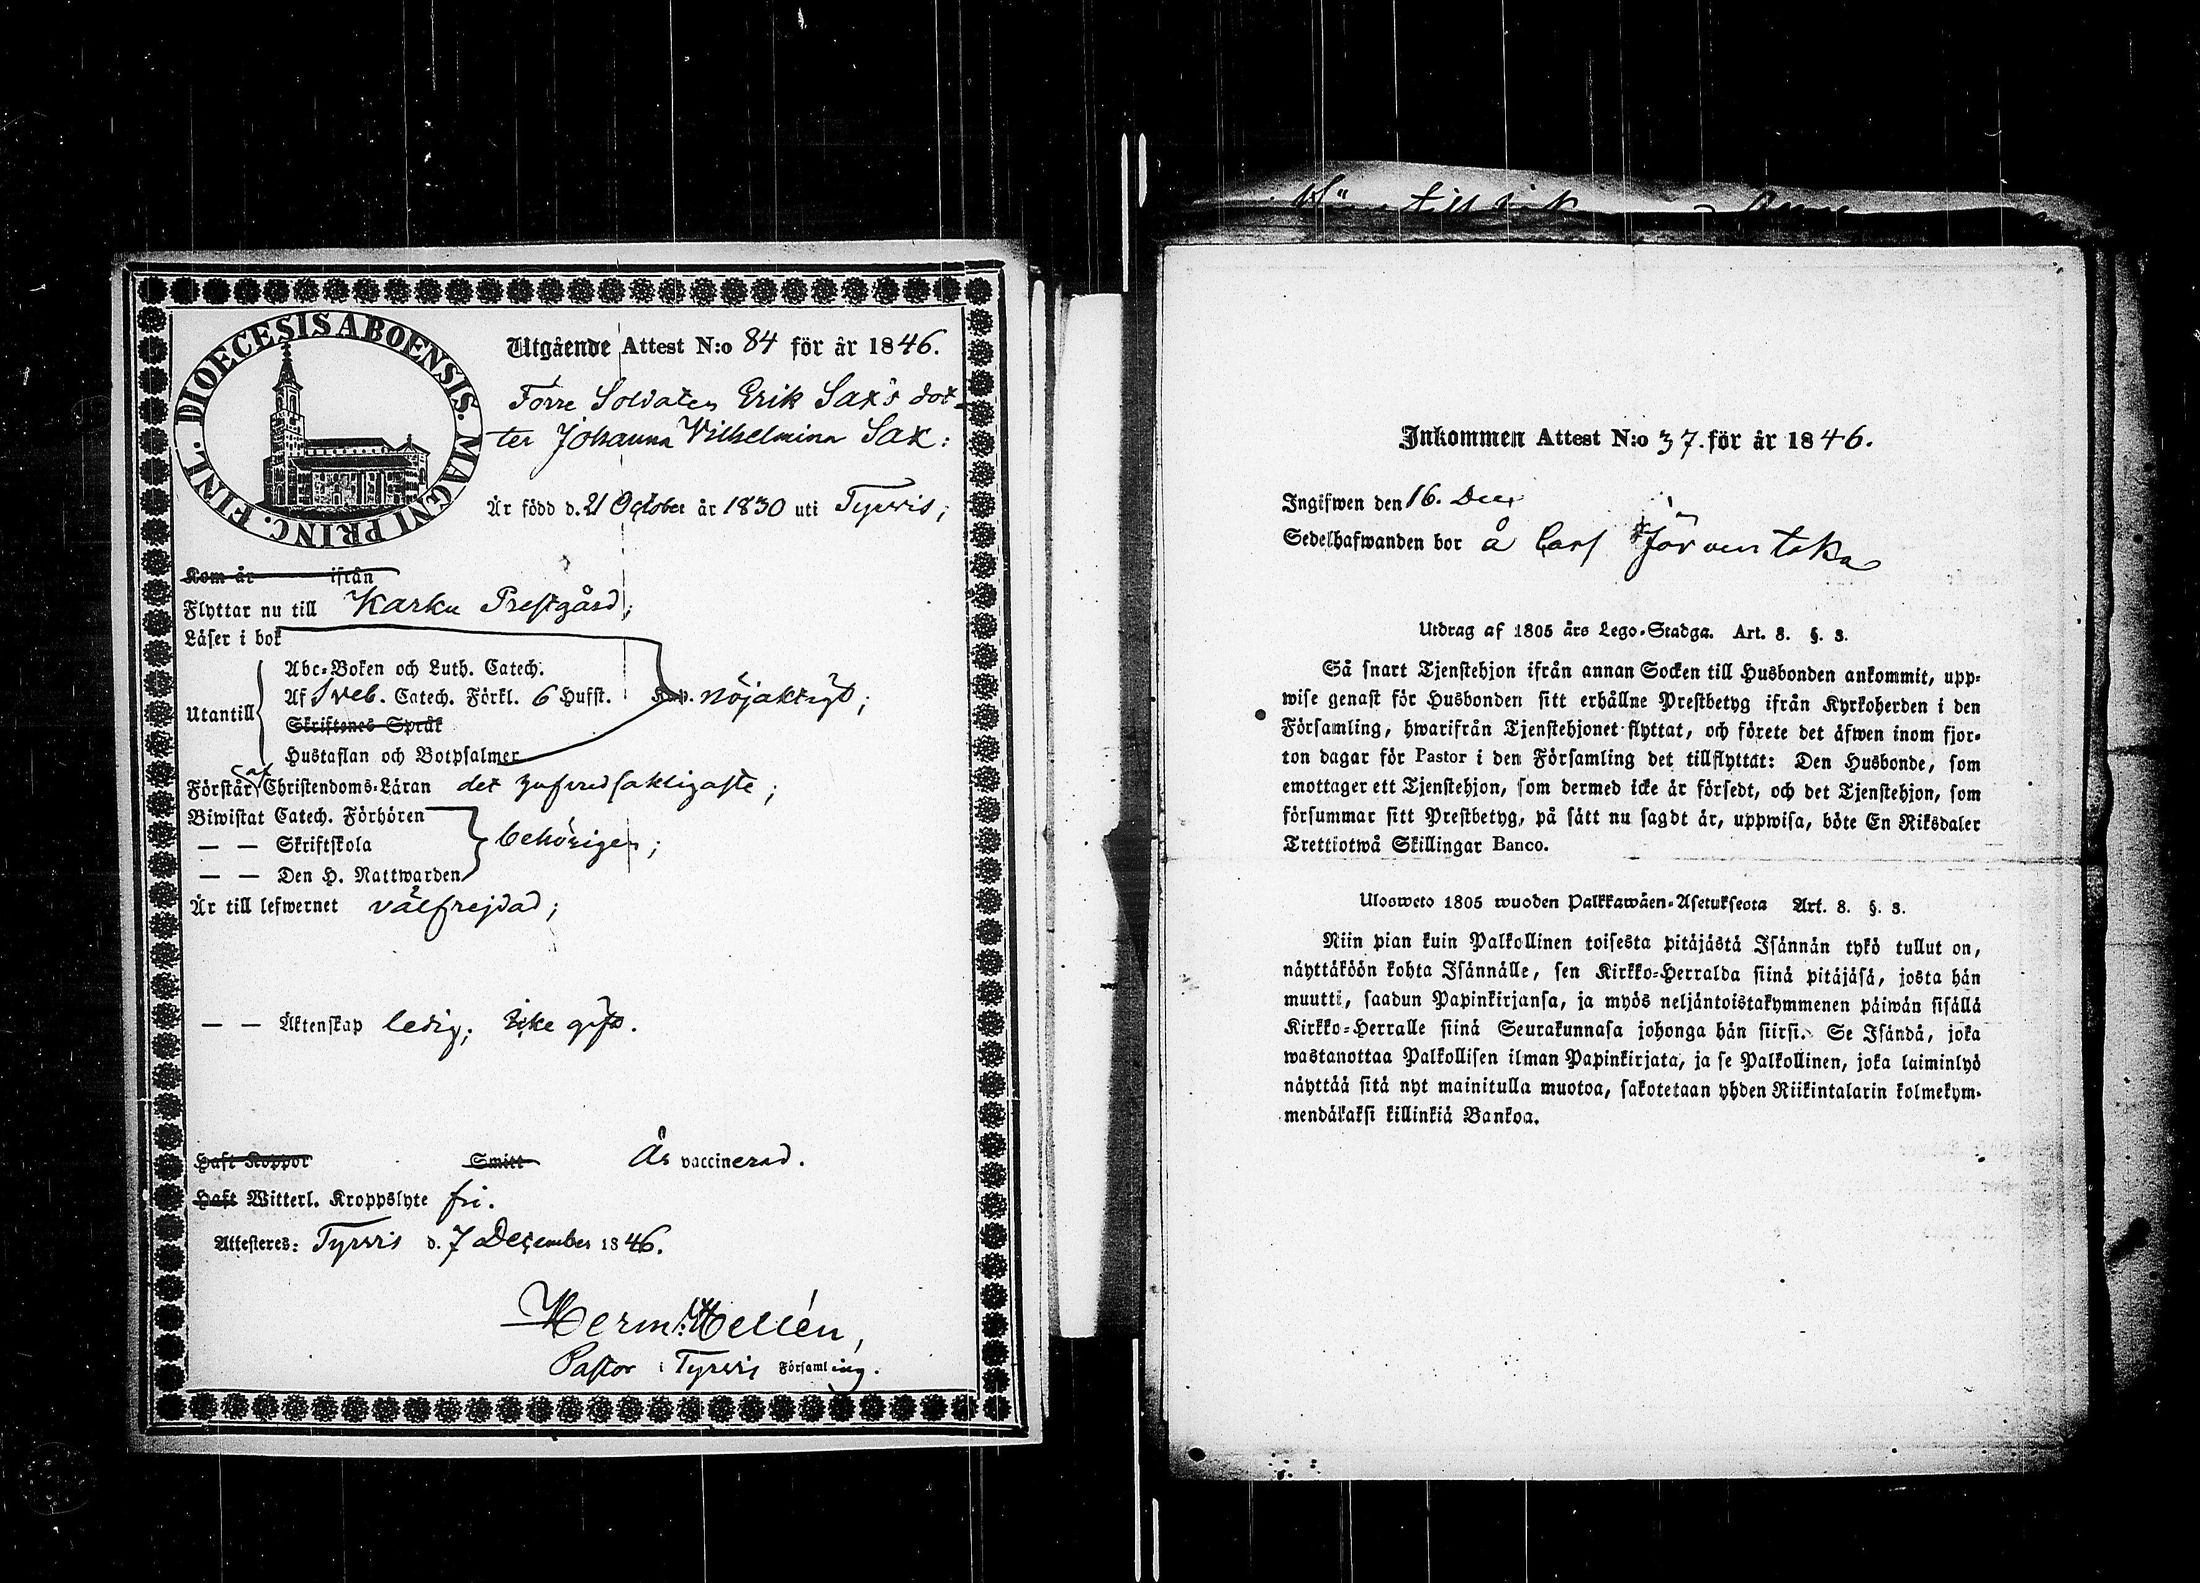 DIOECESIS ABOENSIS. MAGNI PRINC. FINL.
Utgående Attest N:o 84 för år 1846.
Förre Soldaten Erik Sax's dot-
ter Johanna Vilhelmina Sax:
Är född d. 21 October år 1830 uti Tyrvis;
Kom år ifrån
Flyttar nu till Karku Prestgård;
Läser i bok
Abc-Boken och Luth. Catech.
Utantill Af Sveb. Catech. Förkl. 6 Hufst. Kap. nöjaktigt;
Skriftenes Språk
Hustaflan och Botpsalmer
Förstår af Christendoms-Läran det
Biwistat Catech. Förhören
— — Skriftskola behörigen;
— — Den H. Nattwarden
Är till lefwernet välfrejdad;
— — Äktenskap ledig; icke gift.
Haft Koppor Smitt Är vaccinerad.
Haft Witterl. Kroppslyte fri.
Attesteres: Tyrvis d. 7 December 1846.
Herm. Hellén,
Pastor i Tyrvis Församling.
Inkommen Attest N:o 37. för år 1846.
Ingifwen den 16. Decr
Sedelhafwanden bor å Carl
Utdrag af 1805 års Lego-Stadga. Art. 8. §. 3.
Så snart Tjenstehjon ifrån annan Socken till Husbonden ankommit, upp-
wise genast för Husbonden sitt erhållne Prestbetyg ifrån Kyrkoherden i den
Församling, hwarifrån Tjenstehjonet flyttat, och förete det äfwen inom fjor-
ton dagar för Pastor i den Församling det tillflyttat: Den Husbonde, som
emottager ett Tjenstehjon, som dermed icke är försedt, och det Tjenstehjon, som
försummar sitt Prestbetyg, på sätt nu sagdt är, uppwisa, böte En Riksdaler
Trettiotwå Skillingar Banco.
Ulosweto 1805 wuoden Palkkawäen-Asetuksesta Art. 8. §. 3.
Niin pian kuin Palkollinen toisesta pitäjästä Isännän tykö tullut on,
näyttäköön kohta Isännälle, sen Kirkko-Herralda siinä pitäjäsä, josta hän
muutti, saadun Papinkirjansa, ja myös neljäntoistakymmenen päiwän sisällä
Kirkko-Herralle siinä Seurakunnasa johonga hän siirsi. Se Isändä, joka
wastanottaa Palkollisen ilman Papinkirjata, ja se Palkollinen, joka laiminlyö
näyttää sitä nyt mainitulla muotoa, sakotetaan yhden Riikintalarin kolmekym-
mendäkaksi killinkiä Bankoa.